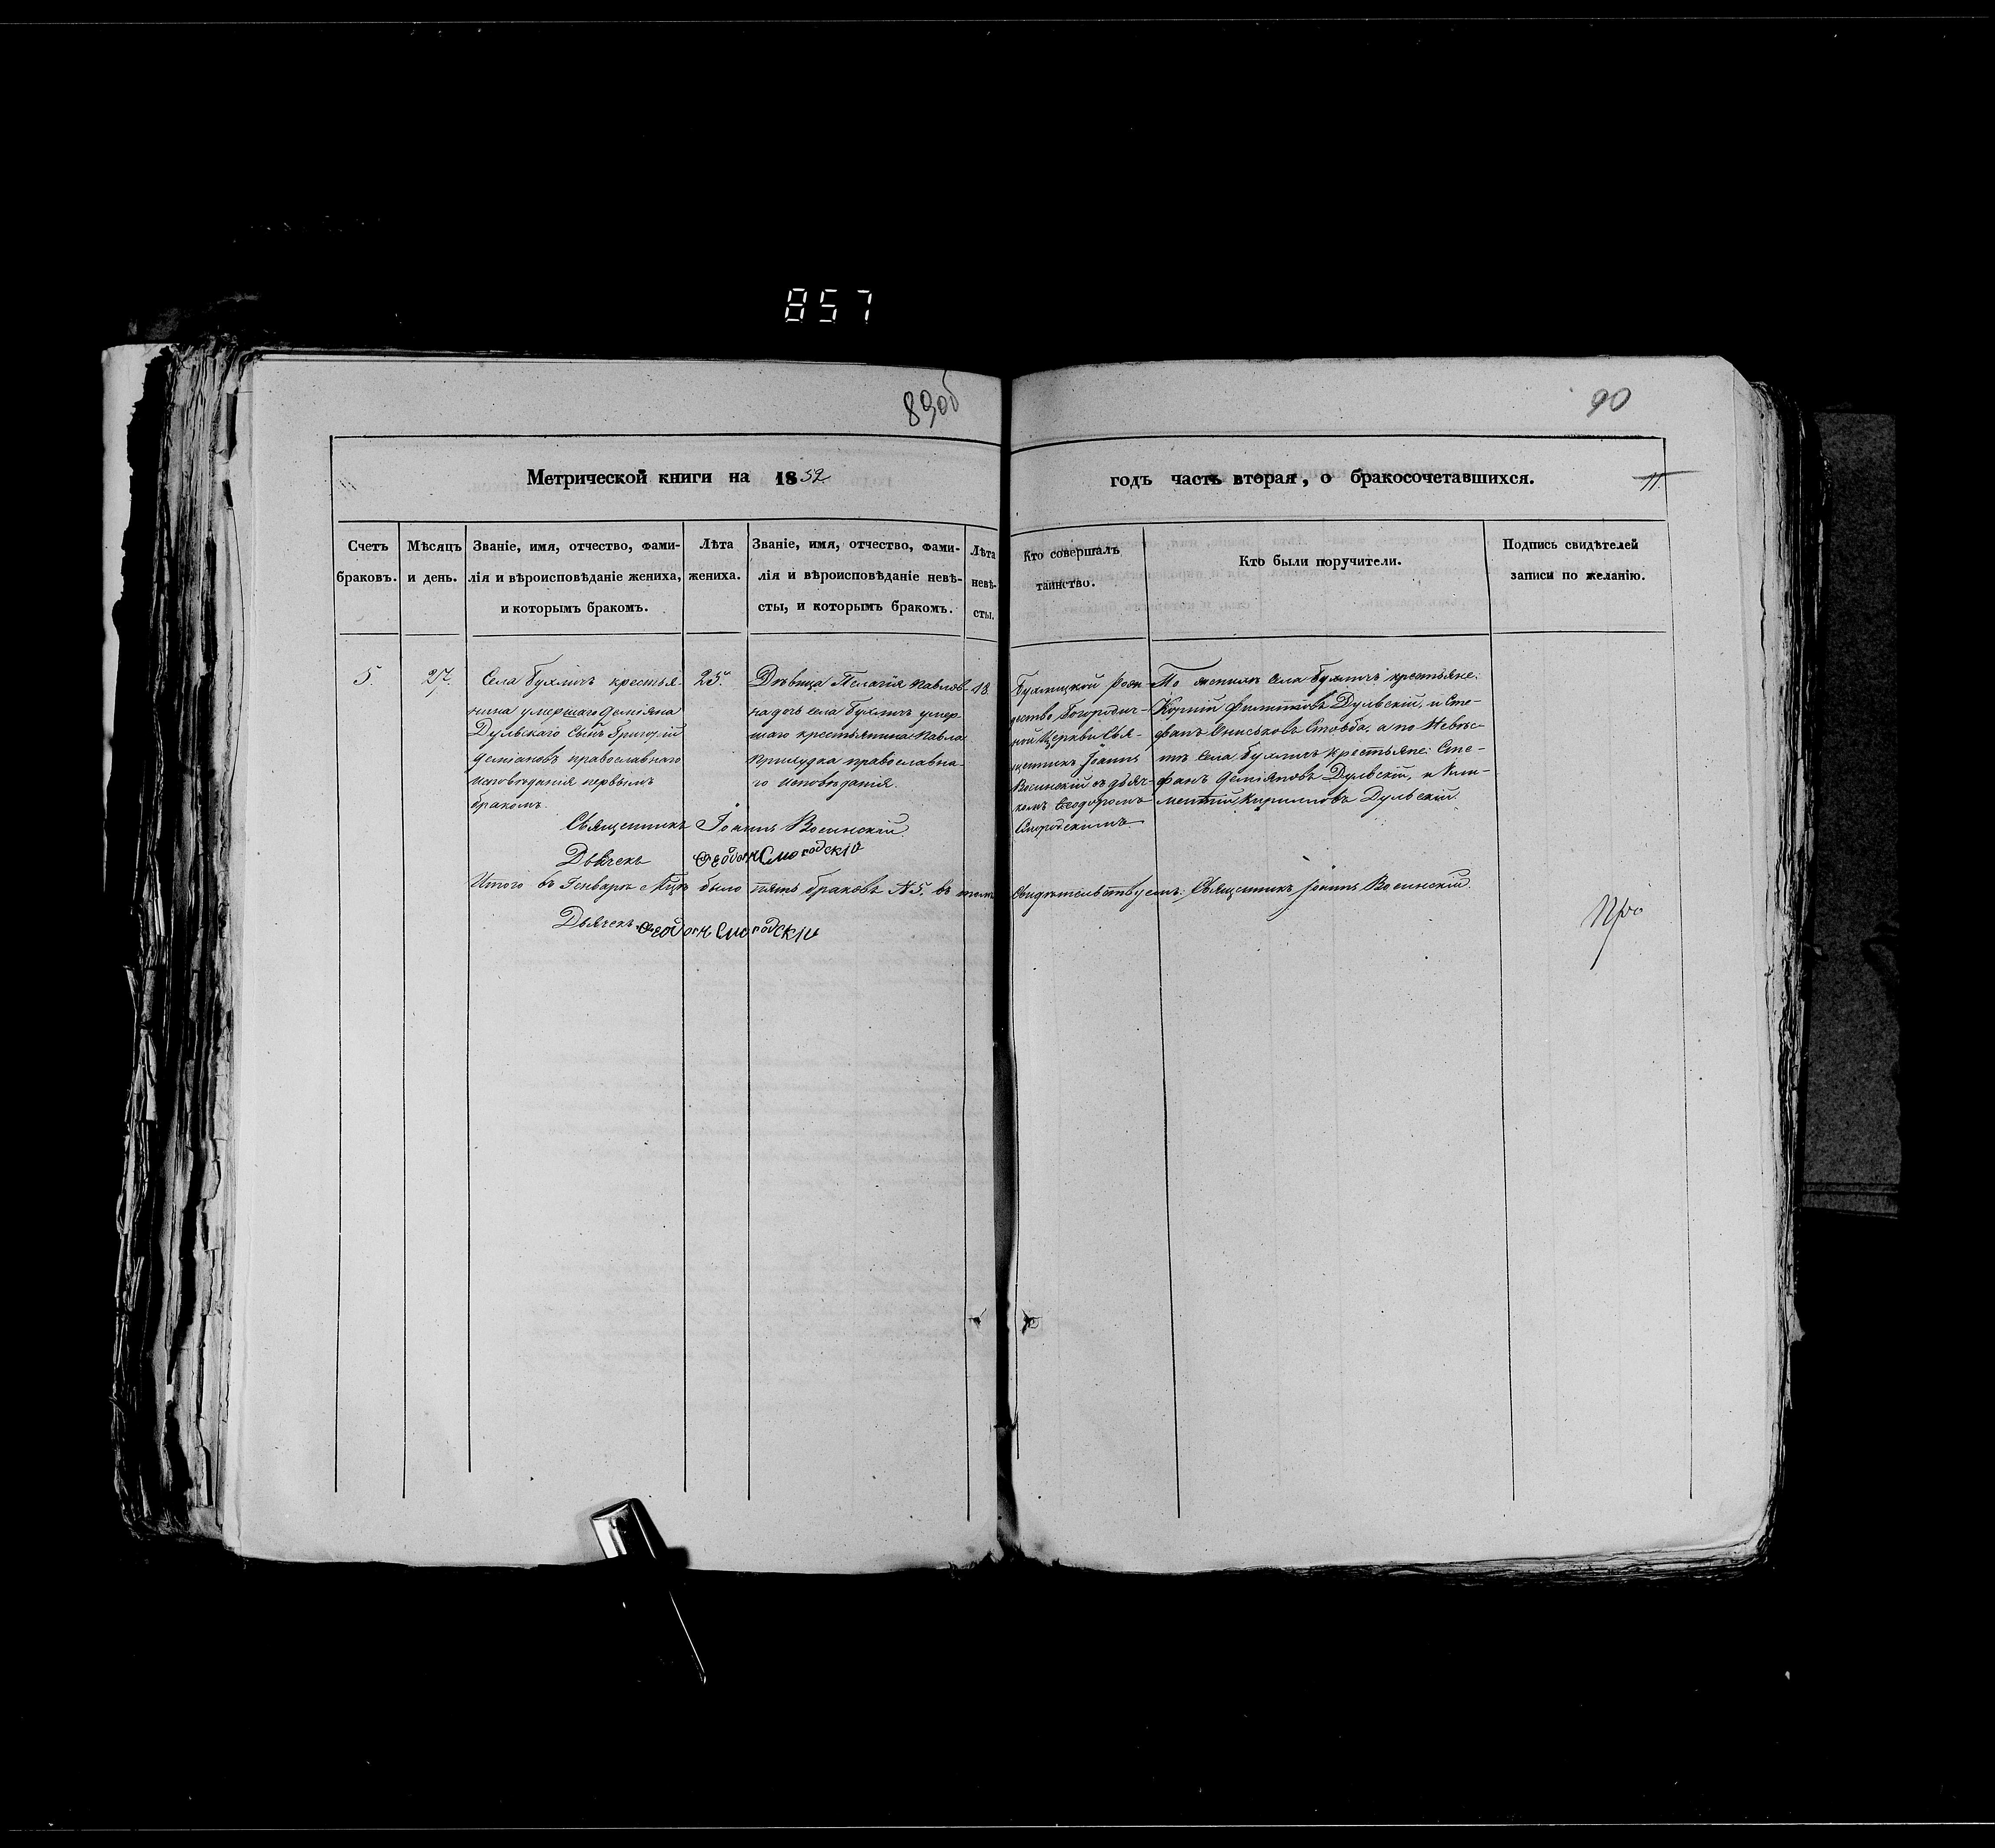 857
89об
90
Метрической книги на 1852
годъ часть вторая, о бракосочетавшихся.
11.
Счетъ
браковъ.
Мѣсяцъ
и день.
Званіе, имя, отчество, фами-
лія и вѣроисповѣданіе жениха,
и которымъ бракомъ.
Лѣта
жениха.
Званіе, имя, отчество, фами-
лія и вѣроисповѣданіе невѣ-
сты, и которымъ бракомъ.
Лѣта
невѣ-
сты.
Кто совершалъ
таинство.
Кто были поручители.
Подпись свидѣтелей
записи по желанію.
5.
27.
Села Бухличъ крестья-
нина умершаго Деміяна
Дульскаго сынъ Григорій
Деміановъ православнаго
исповѣданія первымъ
бракомъ.
25.
Дѣвица Пелагія Павлов-
на дочь села Бухличъ умер
шаго крестьянина Павла
Прилудка православна-
го исповѣданія.
18
Бухлицкой Рож-
дество Богородич-
ной Церкви Свя-
щенникъ Іоаннъ
Воинскій съ дьяч-
комъ Ѳеодоромъ
Смородскимъ.
По женихѣ села Бухличъ крестьяне:
Корній Филиповъ Дульскій, и Сте-
фанъ Онисковъ Столба, а по невѣс-
тѣ села Бухличъ крестьяне: Сте-
фанъ Деміяновъ Дульскій, и Кли-
ментій Кириловъ Дульскій.
Священникъ Іоаннъ Воинскій.
Дьячекъ Ѳеодоръ Смородскій
Итого въ Генварѣ Мцѣ было пять браковъ № 5. въ томъ
свидѣтельствуемъ: Священникъ Іоаннъ Воинскій.
Дьячекъ Ѳеодоръ Смородскій